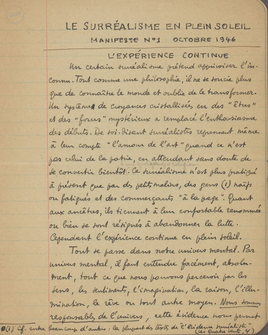 LE SURRÉALISME EN PLEIN SOLEIL
MANIFESTE N°1 OCTOBRE 1946
L'EXPÉRIENCE CONTINUE
Un certain surréalisme prétend apprivoiser l'in-
connu. Tout comme une philosophie, il ne se soucie plus
que de connaître le monde et oublie de le transformer.
Un système de croyances cristallisées en des "êtres"
et des "forces" mystérieux a remplacé l'enthousiasme
des débuts. De soi-disant surréalistes reprennent même
à leur compte "l'amour de l'art" quand ce n'est
pas celui de la patrie, en attendant sans doute de
se convertir bientôt. Ce surréalisme n'est plus pratiqué
à présent que par des petits malins, des gens (1) naïfs
ou fatigués et des commerçants "à la page". Quant
aux ancêtres, ils tiennent à leur confortable renommée
ou bien se sont résignés à abandonner la lutte.
Cependant l'expérience continue en plein soleil.
Tout se passe dans notre univers mental. Par
univers mental, il faut entendre forcément, absolu-
ment, tout ce que nous pouvons percevoir par les
sens, les sentiments, l'imagination, la raison, l'illu-
mination, le rêve ou tout autre moyen. Nous sommes
responsables de l'univers, cette évidence nous permet
(1) Cf. entre beaucoup d'autres : la plupart des